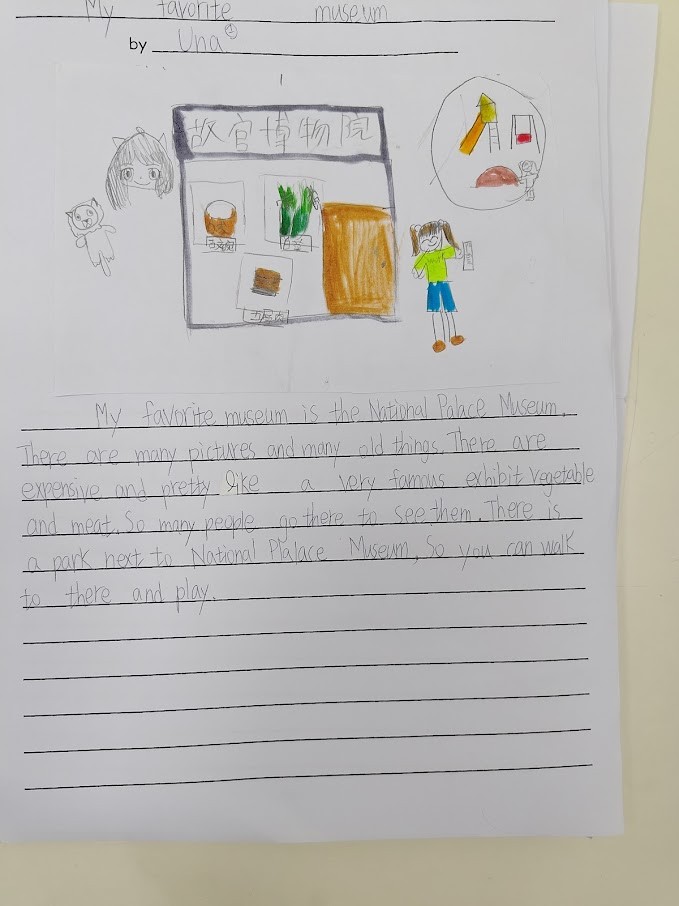 My favorite museum
by Una
故宮博物院
My favorite museum is the National Palace Museum.
There are many pictures and many old things. There are
expensive and pretty like a very famous exhibit vegetable
and meat. So many people go there to see them. There is
a park next to National Plalace Museum, So you can walk
to there and play.